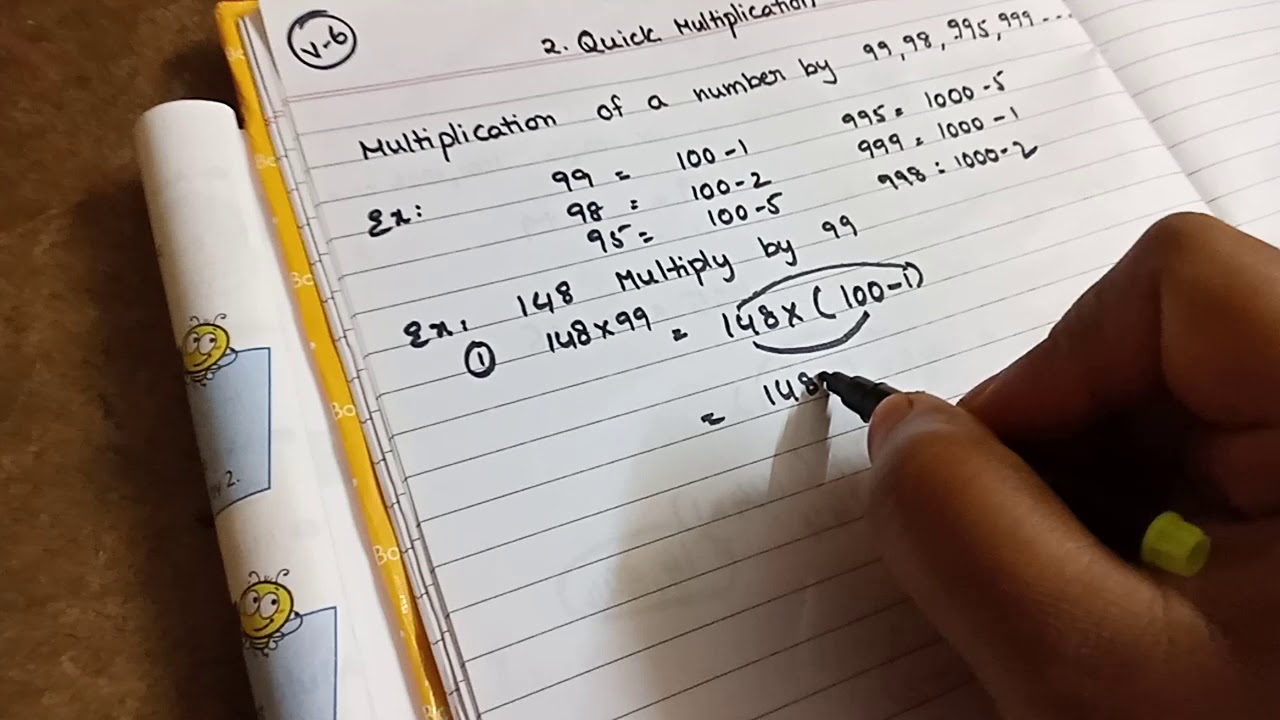 V-6
2. Quick Multiplication
Multiplication of a number by 99, 98, 995, 999 ...
Ex: 99 = 100-1 995 = 1000-5
98 = 100-2 999 = 1000-1
95 = 100-5 998 = 1000-2
Ex: 148 Multiply by 99
① 148×99 = 148×(100-1)
= 148
2.
Bo
Bo
Bo
Bo